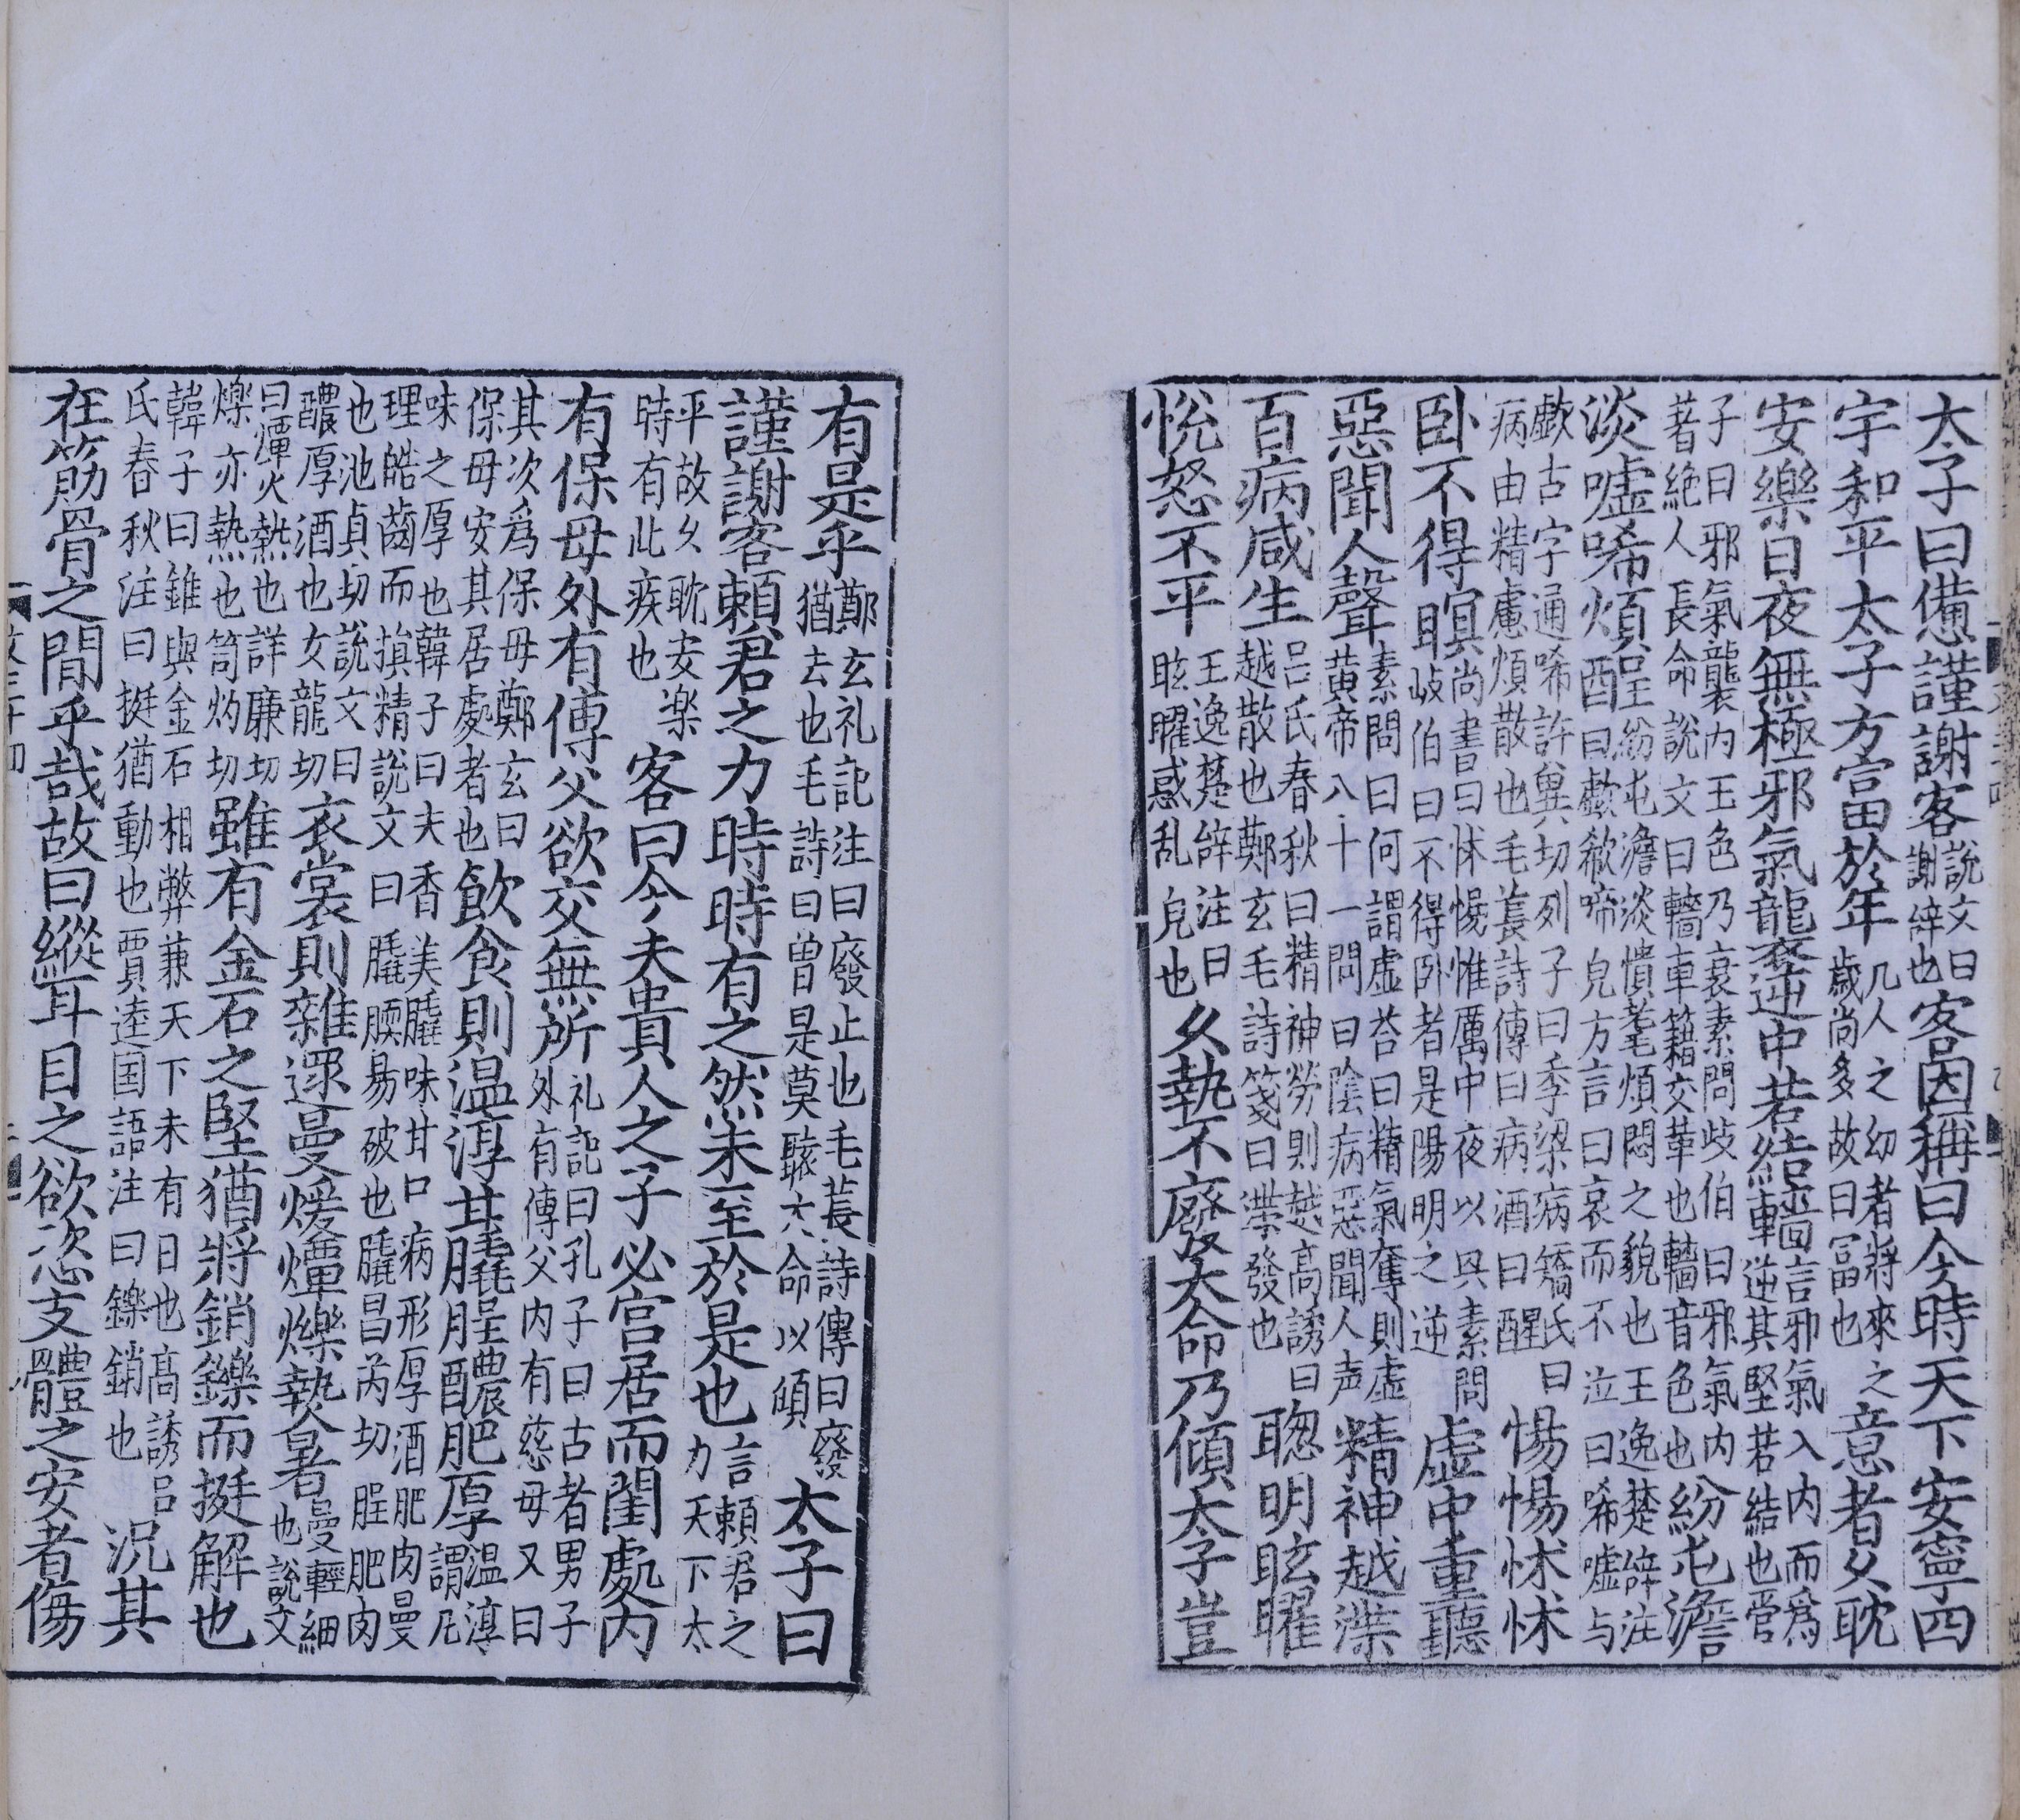 太子曰憊謹謝客說文曰謝辤也客因稱曰今時天下安寧四
宇和平太子方富於年凡人之幼者將來之歲尚多故曰冨也意者久耽
安樂日夜無極邪氣襲逆中若結轖言邪氣入內而爲逆其堅若結也管
子曰邪氣襲內玉色乃衰素問歧伯曰邪氣内著絶人長命說文曰轖車籍交革也轖音色也紛屯澹
淡噓唏煩酲紛屯澹淡憒耄煩悶之貌也王逸楚辤注曰歔欷啼皃方言曰哀而不泣曰唏噓与
歔古字通唏許兾切列子曰季梁病矯氏曰病由精慮煩散也毛萇詩傳曰病酒曰酲惕惕怵怵
卧不得瞑尚書曰怵惕惟厲中夜以興素問歧伯曰不得卧者是陽明之逆虛中重聽
惡聞人聲素問曰何謂虛荅曰精氣奪則虛黃帝八十一問曰陰病惡聞人声精神越渫
百病咸生呂氏春秋曰精神勞則越高誘曰越散也鄭玄毛詩箋曰渫發也聦明眩曜
恱怒不平王逸楚辤注曰眩曜惑乱皃也久執不廢大命乃傾太子豈
有是乎鄭玄礼記注曰廢止也毛萇詩傳曰廢猶去也毛詩曰曾是莫聼大命以傾太子曰
謹謝客賴君之力時時有之然未至於是也言賴君之力天下太
平故久耽安楽時有此疾也客曰今夫貴人之子必宫居而閨處内
有保母外有傅父欲交無所礼記曰孔子曰古者男子外有傅父内有慈母又曰
其次爲保母鄭玄曰保母安其居處者也飲食則温淳甘膬腥醲肥厚温淳謂凡
味之厚也韓子曰夫香美膬味甘口病形厚酒肥肉曼理皓齒而損精說文曰膬腝易破也膬昌芮切腥肥肉
也池貞切說文曰醲厚酒也女龍切衣裳則雜遝曼煖燂爍熱暑曼輕細也說文
曰燂火熱也詳廉切爍亦熱也笥灼切雖有金石之堅猶將銷鑠而挺解也
韓子曰錐與金石相弊兼天下未有日也髙誘呂氏春秋注曰挺猶動也賈逵国語注曰鑠銷也況其
在筋骨之間乎哉故曰縱耳目之欲恣支體之安者傷